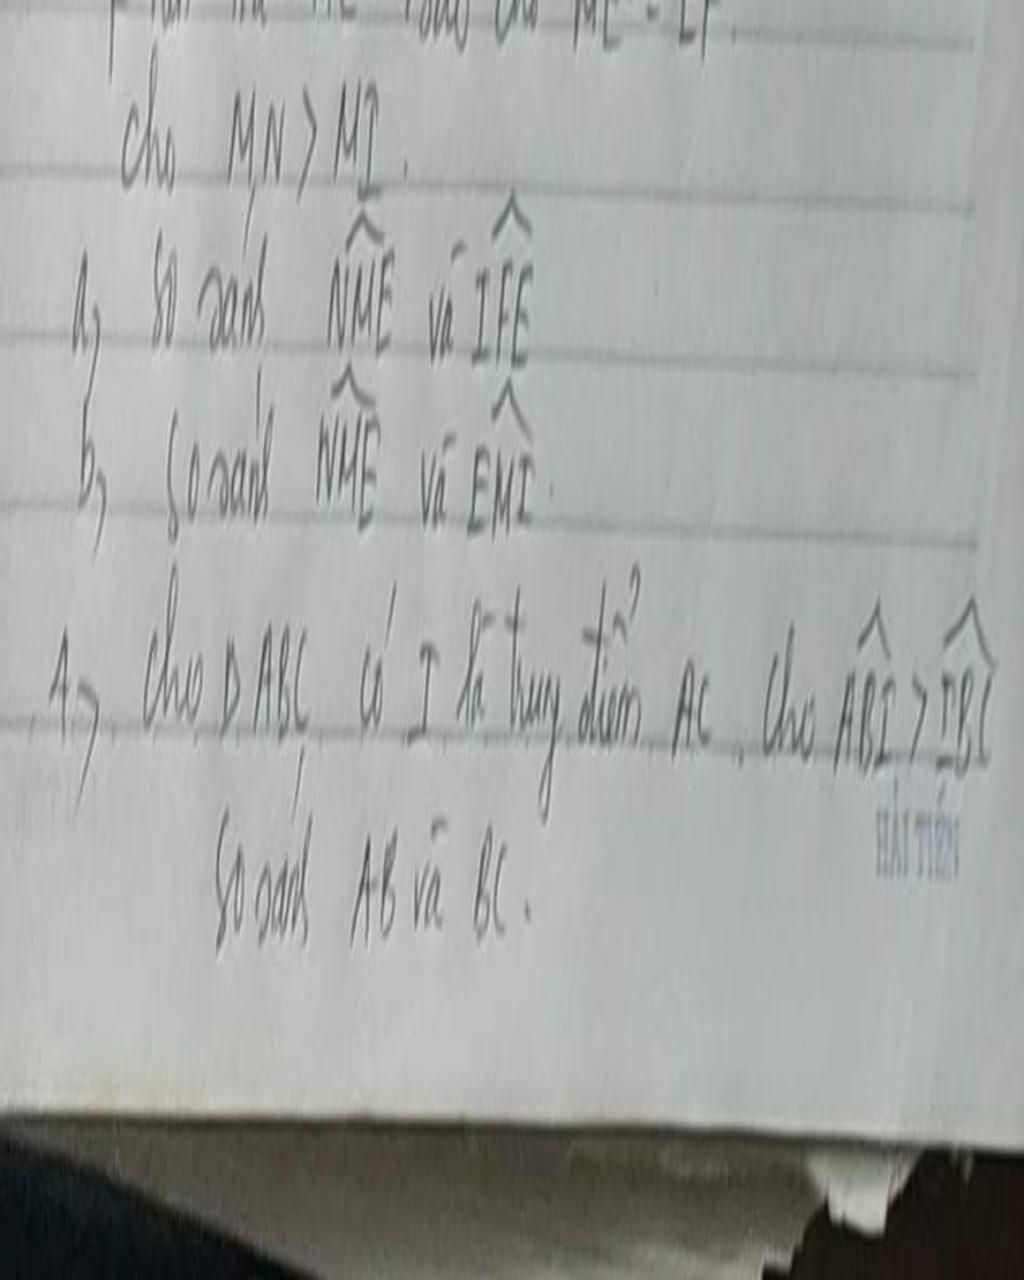 cho ME = EF.
cho MN > MI.
a, so sánh NME và IFE
b, so sánh NME và EMI.
4, cho D ABC có I là trung điểm AC. cho ABI > IBC
HẢI TIẾN
so sánh AB và BC.